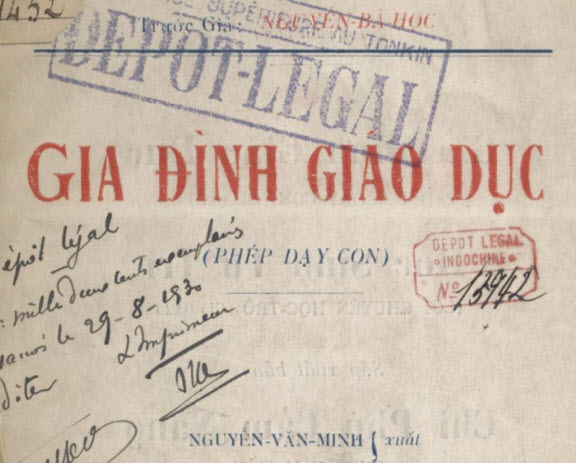 1452
Trước Giả: NGUYỄN-BÁ-HỌC
SUPÉRIEURE AU TONKIN
DEPOT-LEGAL
GIA ĐÌNH GIÁO DỤC
(PHÉP DẠY CON)
DEPOT LEGAL
INDOCHINE
Nº 13942
épôt légal
mille deux cents exemplaires
le 29-8-1930
L'Imprimeur
NGUYỄN-VĂN-MINH { xuất